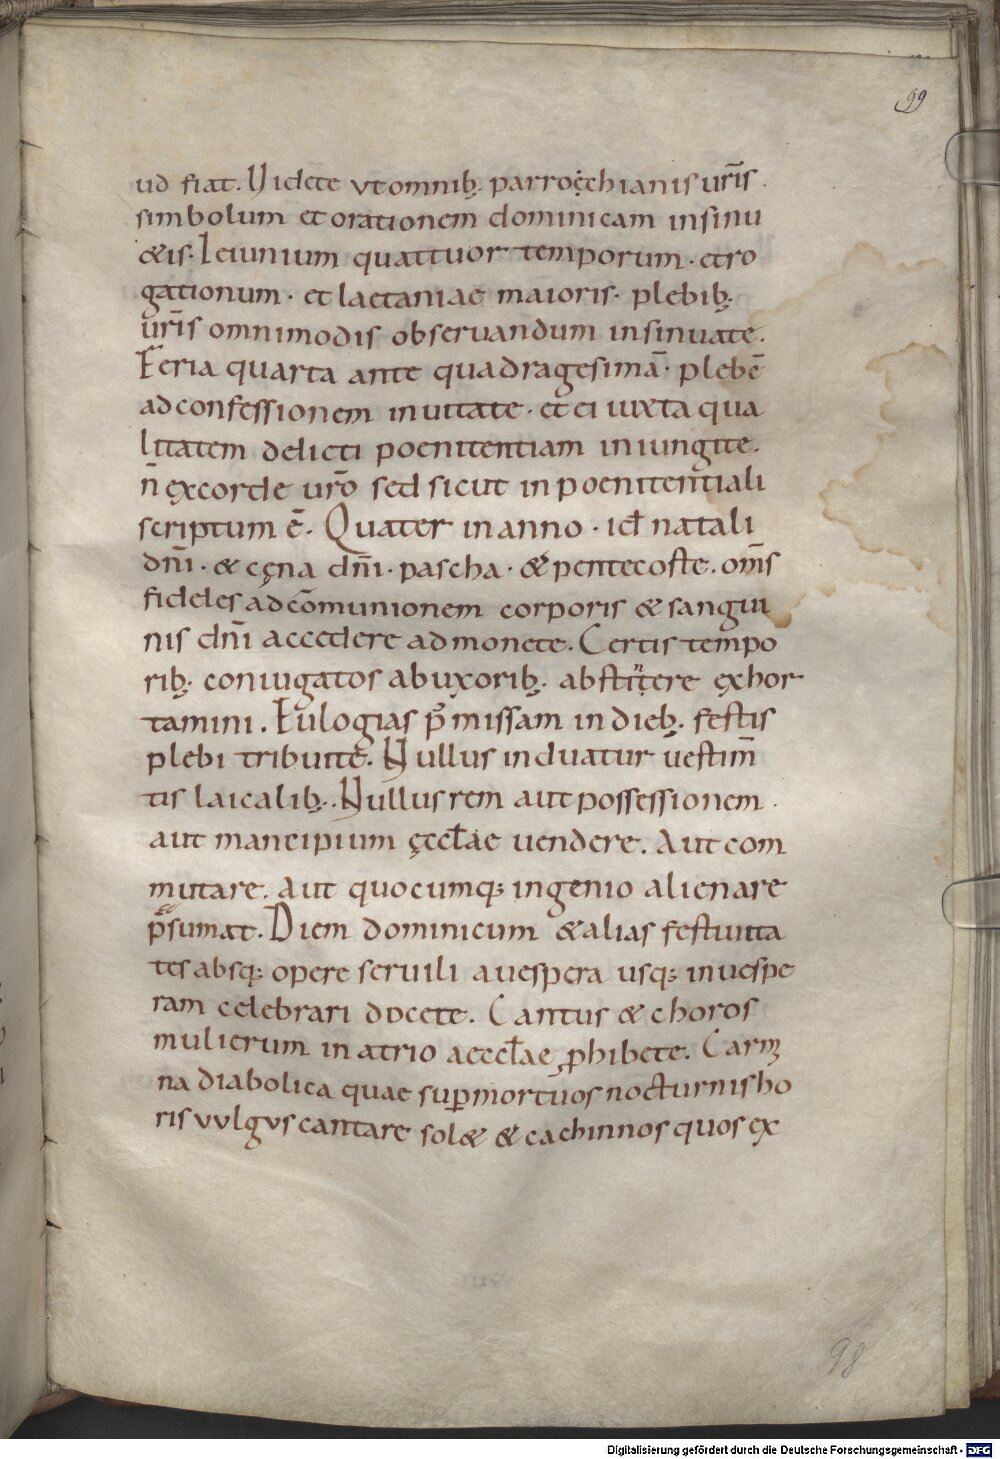 99
ud fiat. Videte ut omnib; parroċhianis ur̄is.
simbolum et orationem dominicam insinu
&is. Ieiunium quattuor temporum. et ro
gationum. et laetaniae maioris. plebib;
ur̄is omnimodis observandum insinuate.
Feria quarta ante quadragesimā. plebē
ad confessionem invitate. et ei iuxta qua
litatem delicti poenitentiam iniungite.
n̄ ex corde ur̄o sed sicut in poenitentiali
scriptum ē. Quater in anno. id÷ natali
dn̄i. & cęna dn̄i. pascha. & pentecoste. om̄s
fideles ad cōmunionem corporis & sangui
nis dn̄i accedere admonete. Certis tempo
rib; coniugatos ab uxorib; abstinere exhor
tamini. Eulogias p̄ missam in dieb; festis
plebi tribuite. Nullus induatur vestim̄
tis laicalib;. Nullus rem aut possessionem.
aut mancipium ęccl̄ae vendere. Aut com
mutare. Aut quocumq; ingenio alienare
p̄sumat. Diem dominicum & alias festivita
tes absq; opere servili a vespera usq; in vespe
ram celebrari docete. Cantus & choros
mulierum in atrio aeccl̄ae ꝓhibete. Carmi
na diabolica quae suꝑ mortuos nocturnis ho
ris vulgus cantare sol& & cachinnos quos ex
98
Digitalisierung gefördert durch die Deutsche Forschungsgemeinschaft - DFG